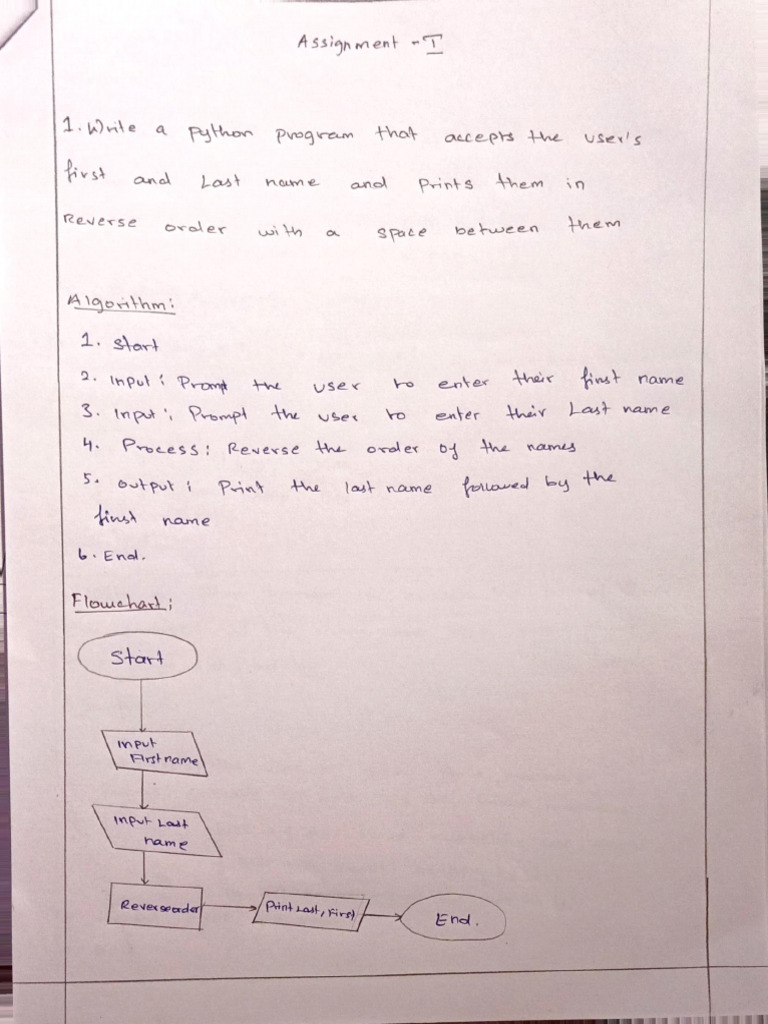 Assignment - I
1. Write a python program that accepts the user's
first and Last name and prints them in
Reverse order with a space between them
Algorithm:
1. Start
2. Input: Promt the user to enter their first name
3. Input: Prompt the user to enter their Last name
4. Process: Reverse the order of the names
5. Output: Print the last name followed by the
first name
6. End.
Flowchart:
Start
Input
First name
Input Last
name
Reverse order
Print Last, First
End.